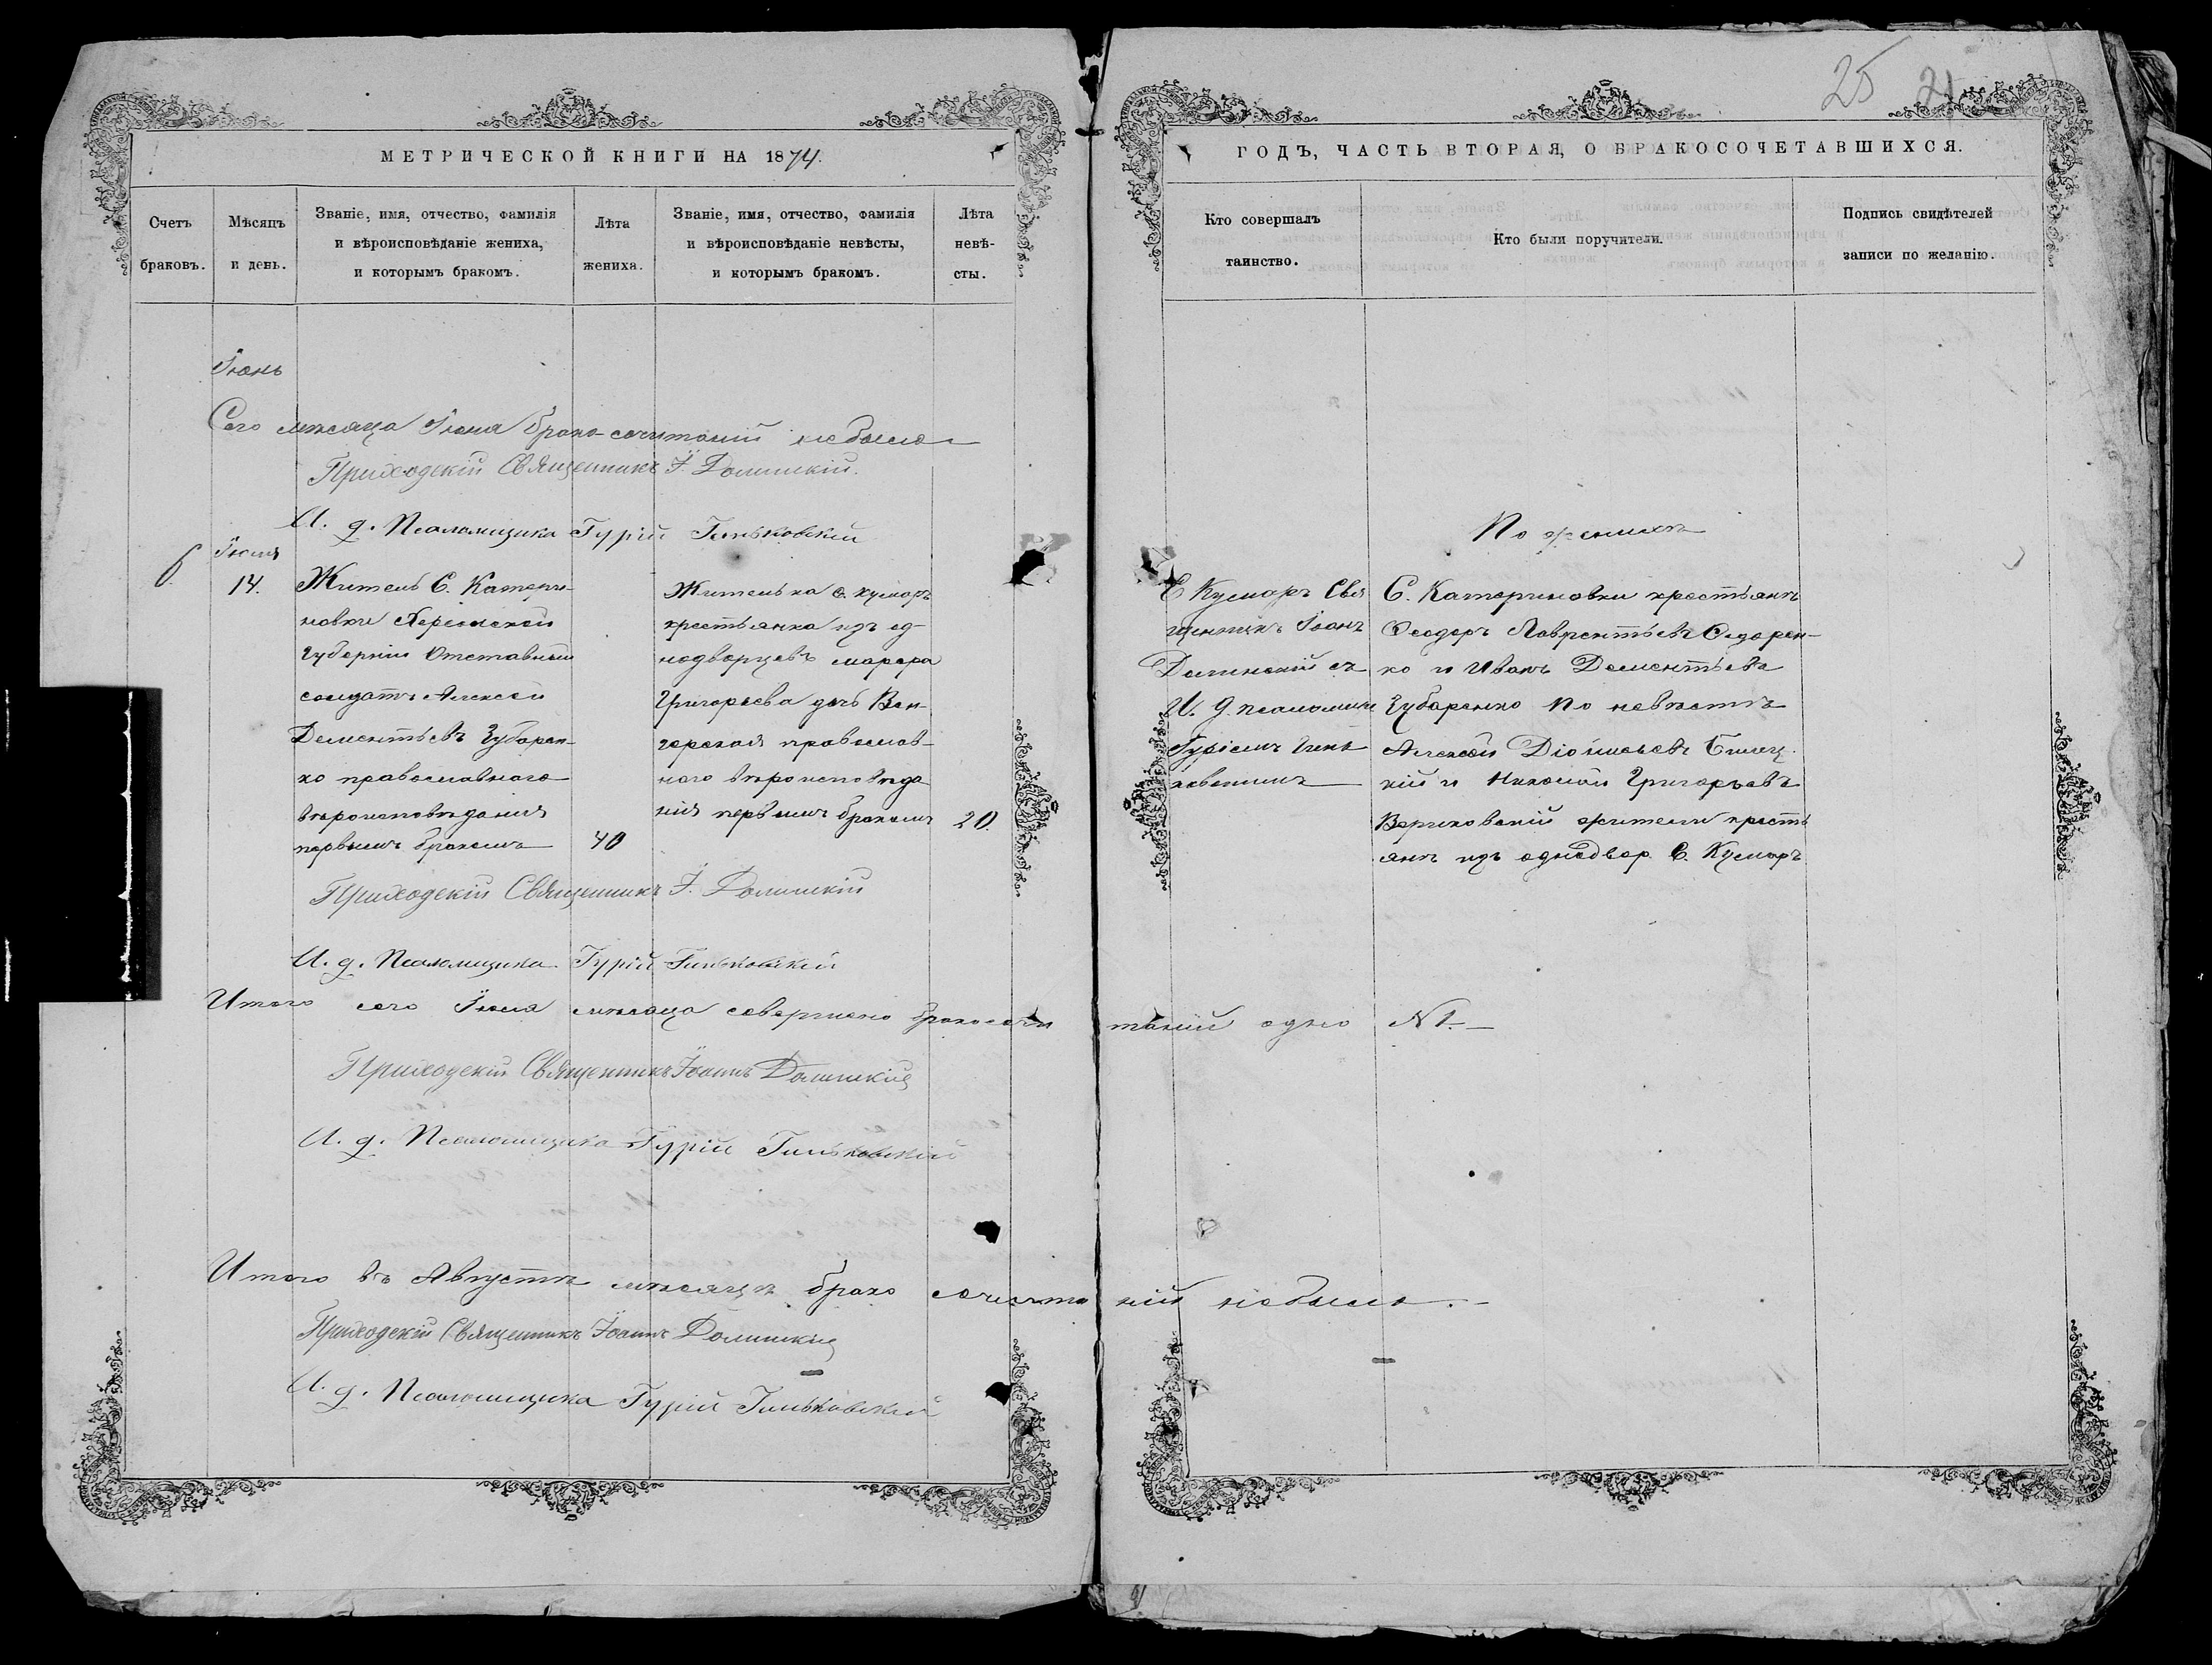 25 21
МЕТРИЧЕСКОЙ КНИГИ НА 1874.
ГОДЪ, ЧАСТЬ ВТОРАЯ, О БРАКОСОЧЕТАВШИХСЯ.
Счетъ браковъ.
Мѣсяцъ и день.
Званіе, имя, отчество, фамилія
и вѣроисповѣданіе жениха,
и которымъ бракомъ.
Лѣта жениха.
Званіе, имя, отчество, фамилія
и вѣроисповѣданіе невѣсты,
и которымъ бракомъ.
Лѣта невѣ-
сты.
Кто совершалъ
таинство.
Кто были поручители.
Подпись свидѣтелей
записи по желанію.
Іюнь
Сего мѣсяца Іюня брако-сочитаній небыло
Приходскій Священникъ І. Долинскій.
И. д. Псаломщика Гурій Гиньковскій
Іюля
14.
Житель С. Катери-
новки Херсонской
Губерніи Отставный
солдатъ Алексѣй
Дементьевъ Зубарен-
ко православнаго
вѣроисповѣданія
первымъ бракомъ
40
Жителька с. Кусморъ
крестьянка изъ од-
нодворцевъ
Григорьева дочь Вен-
герская православ-
наго вѣроисповѣда
нія первымъ бракомъ
20.
С Кусморъ Свя
щенникъ Іоанъ
Долинскій съ
И. д. псаломщи
Гуріемъ Гинь
ковскимъ
По женихѣ
С. Катериновки крестьянъ
Ѳеодоръ Лаврентьевъ Сидорен-
ко и Иванъ Дементьевъ
Зубаренко По невѣстѣ
Алексѣй Діонисьевъ Билец
кій и Николай Григорьевъ
Вериковскій жители кресть
янъ изъ однодвор. С. Кусморъ
Приходскій Священникъ І. Долинскій
И. д. Псаломщика Гурій Гиньковскій
Итого сего Іюля мѣсяца совершено бракосочи таній одно № 1.
Приходскій Священникъ Іоаннъ Долинскій
И. д. Псаломщика Гурій Гиньковскій
Итого въ Августѣ мѣсяцѣ брако сочита ній небыло.
Приходскій Священникъ Іоаннъ Долинскій
И. д. Псаломщика Гурій Гиньковскій